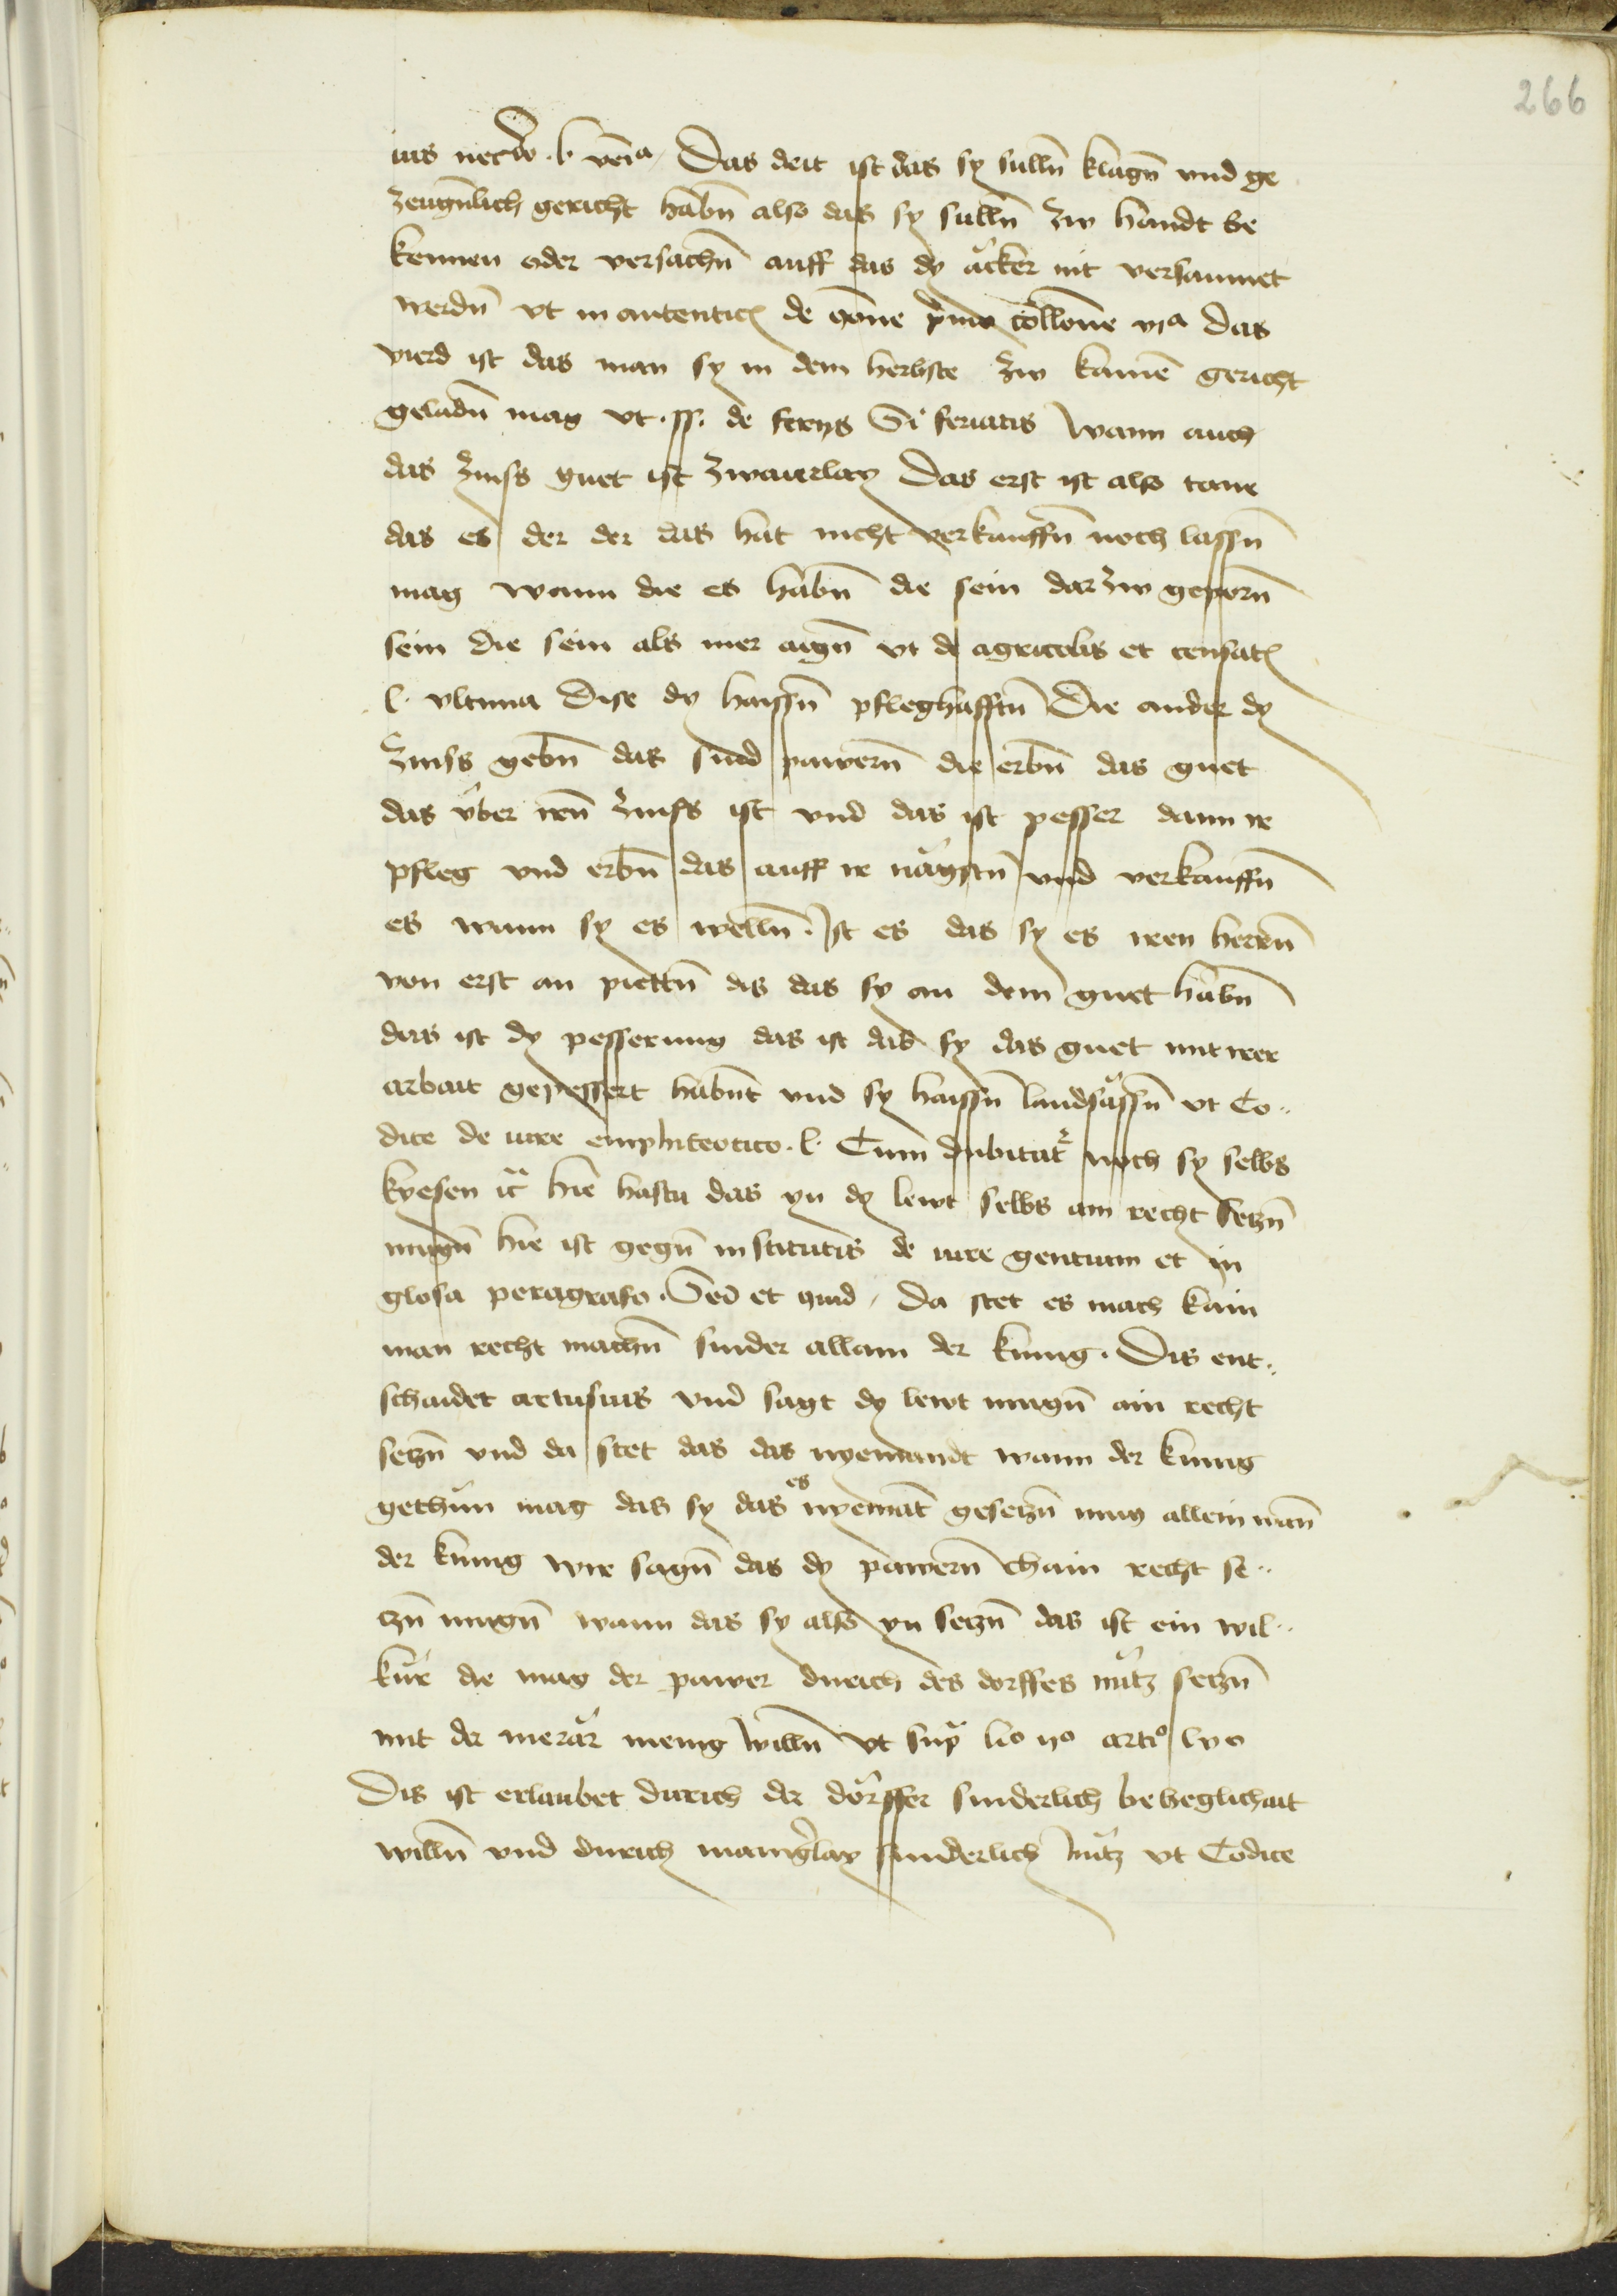 266
ius nec do. l. venia. Das drit ist das sy sulln̄ klagn̄ vnd ge
zeugn̄lich gericht habn̄ also das sy sulln̄ zw handt be
kennen oder versachn̄ auff das dy ácker nit versaumet
werdn̄ vt in autenticꝭ de collacione via Das
vierd ist das man sy in dem herbste zw kainē gericht
geladn̄ mag vt. ff. de ferys Si feriatis Wann auch
das zinss guet ist zwairlay Das erst ist also tane
das es der der das hat nicht verkauffn̄ noch lassn̄
mag wann die es habn̄ die sein darzw geporn̄
sein die sein als mer aign̄ vt de agricolis et censatꝭ
l. vltima Dise dy haissn̄ pfleghafftn̄ Die ander dy
zinss gebn̄ das sind pawern̄ die erbn̄ das guet
das vber irn̄ zinss ist vnd das ist pesser dann ir
pfleg vnd erbn̄ das auff ir nágstn̄ vnd verkauffn̄
es wann sy es welln̄. Ist es das sy es iren herrn̄
von erst an piettn̄ dis das sy an dem guet habn̄
das ist dy pesserung das ist das sy das guet mit irer
arbait gepessert habnt vnd sy haissn̄ landsássn̄ vt Co..
dice de iure emphiteotico. l. Cum dubitat noch sy selbs
kyesen hie hastu das yn dy lewt selbs ain recht setzn̄
mugn̄ hie ist gegn̄ institutis de iure gentium et in
glosa peragrafo. Sed et quid. da stet es mach kain
man recht machn̄ sunder allain der kunig. Dis ent..
schaidet artusius vnd sagt dy lewt mugn̄ ain recht
setzn̄ vnd da stet das das nyemandt wann der kunig
gethun mag das sy das es nyemāt gesetzn̄ mug allein wan̄
der kunig wir sagn̄ das dy pawern̄ chain recht se..
tzn̄ mugn̄ wann das sy also yn setzn̄ das ist ein wil..
kúr die mag der pawer durich des dorffes nútz setzn̄
mit der merár menig willn̄ vt supra lio iio artio lvo
Dis ist erlaubet durich der dórffer sunderlich beheglichait
willn̄ vnd durich manigerlay sunderlich nútz vt Codice